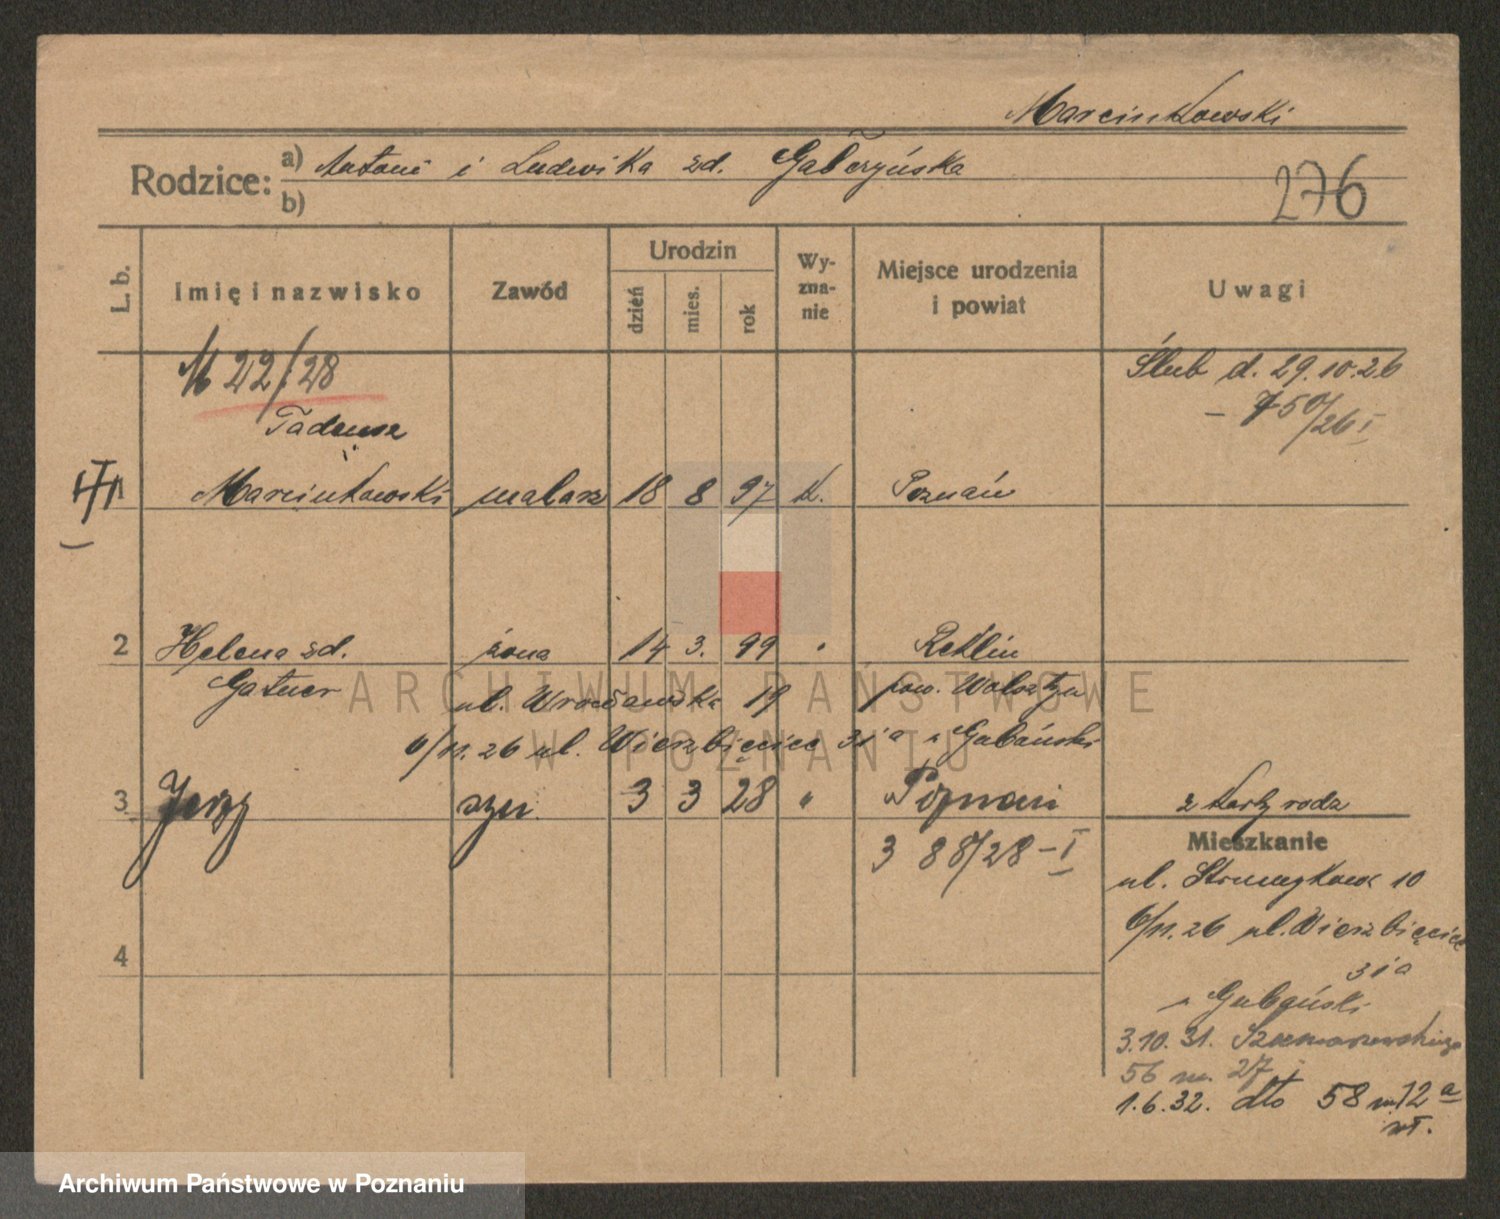 Marcinkowski
Rodzice: a) Antoni i Ludwika zd. Gałczyńska
b)
276
L. b. Imię i nazwisko Zawód Urodzin dzień mies. rok Wy-zna-nie Miejsce urodzenia i powiat Uwagi
M 22/28
Ślub d. 29.10.26
750/26 I
Tadeusz
1 Marcinkowski malarz 18 8 97 k. Poznań
2 Helena zd. żona 14 3. 99 " Reklin
Gatner ul. Wrocławska 19 pow. Wolsztyn
6/11. 26 ul. Wierzbięcice 31a u Gubański
3 Jerzy syn 3 3 28 " Poznań
z karty rodz
3 88/28 - I
Mieszkanie
ul. Strumykowa 10
6/11. 26 ul. Wierzbięcice
31a
u Gubański
4
3.10. 31. Szamarzewskiego
56 m. 27
1.6.32. dto 58 m 12a
ARCHIWUM PAŃSTWOWE
W POZNANIU
Archiwum Państwowe w Poznaniu